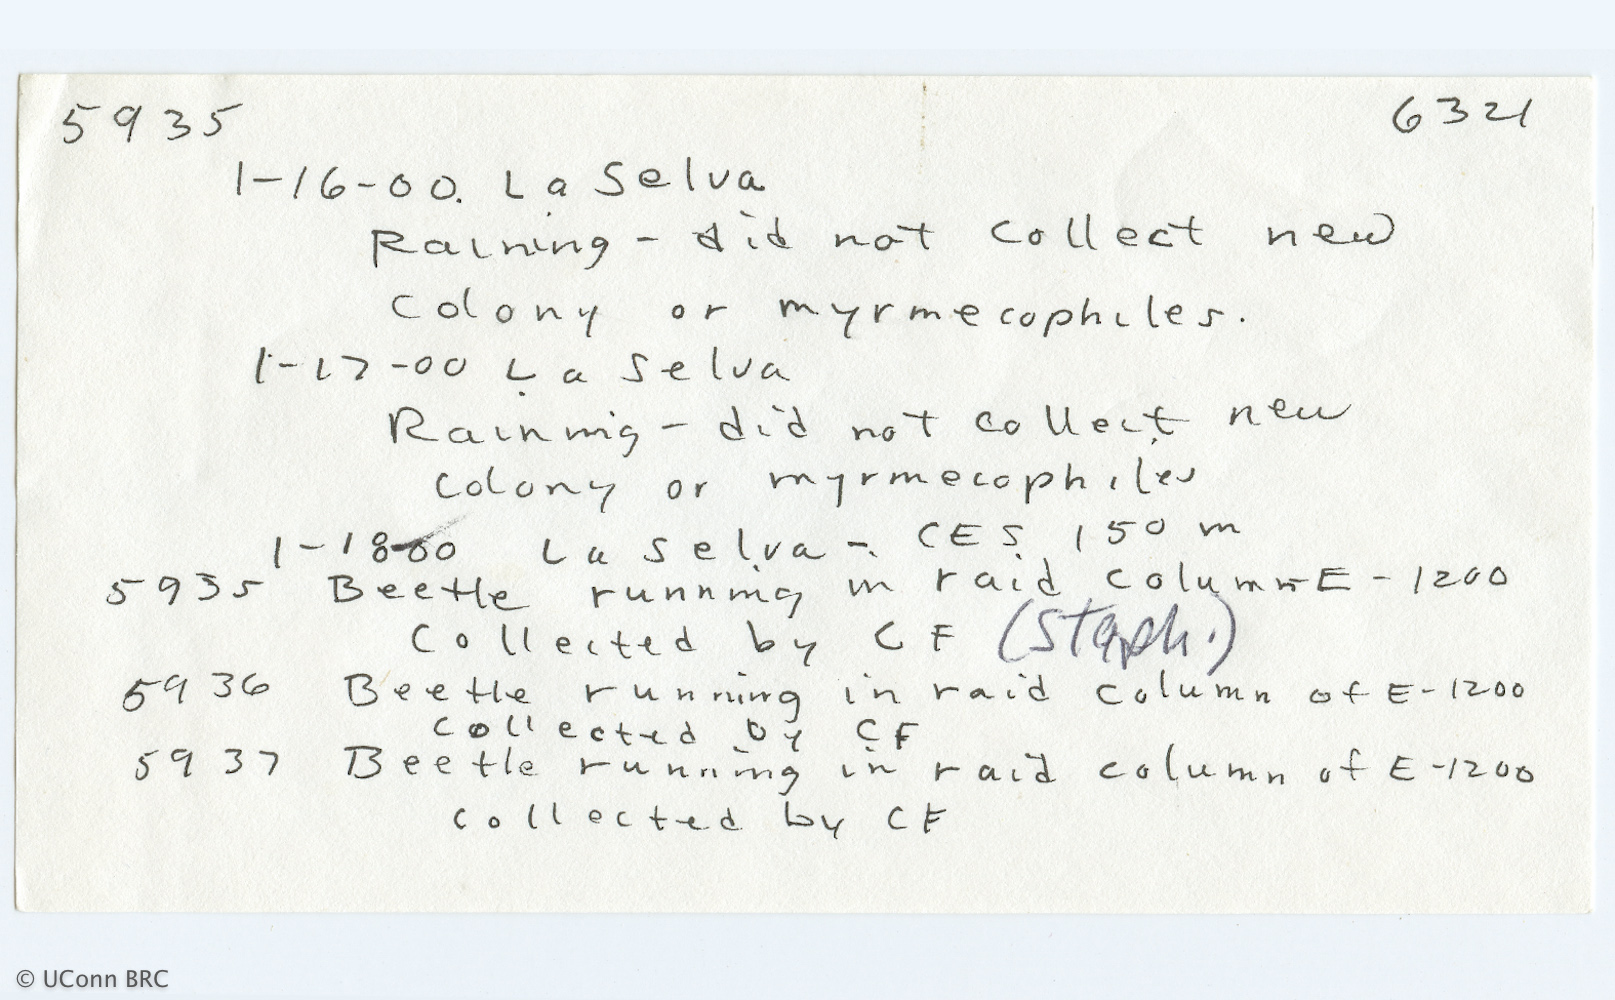 5935 6321
1-16-00. La Selva
Raining - did not collect new
colony or myrmecophiles.
1-17-00 La Selva
Raining - did not collect new
colony or myrmecophiles
1-18-00 La Selva - CES 150 m
5935 Beetle running in raid column E-1200
Collected by CF (Staph.)
5936 Beetle running in raid column of E-1200
collected by CF
5937 Beetle running in raid column of E-1200
collected by CF
© UConn BRC